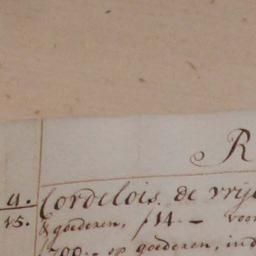 R
4. Cordelois. de vrije
15. & goederen, f 14. — voor
700.. op goederen, ind